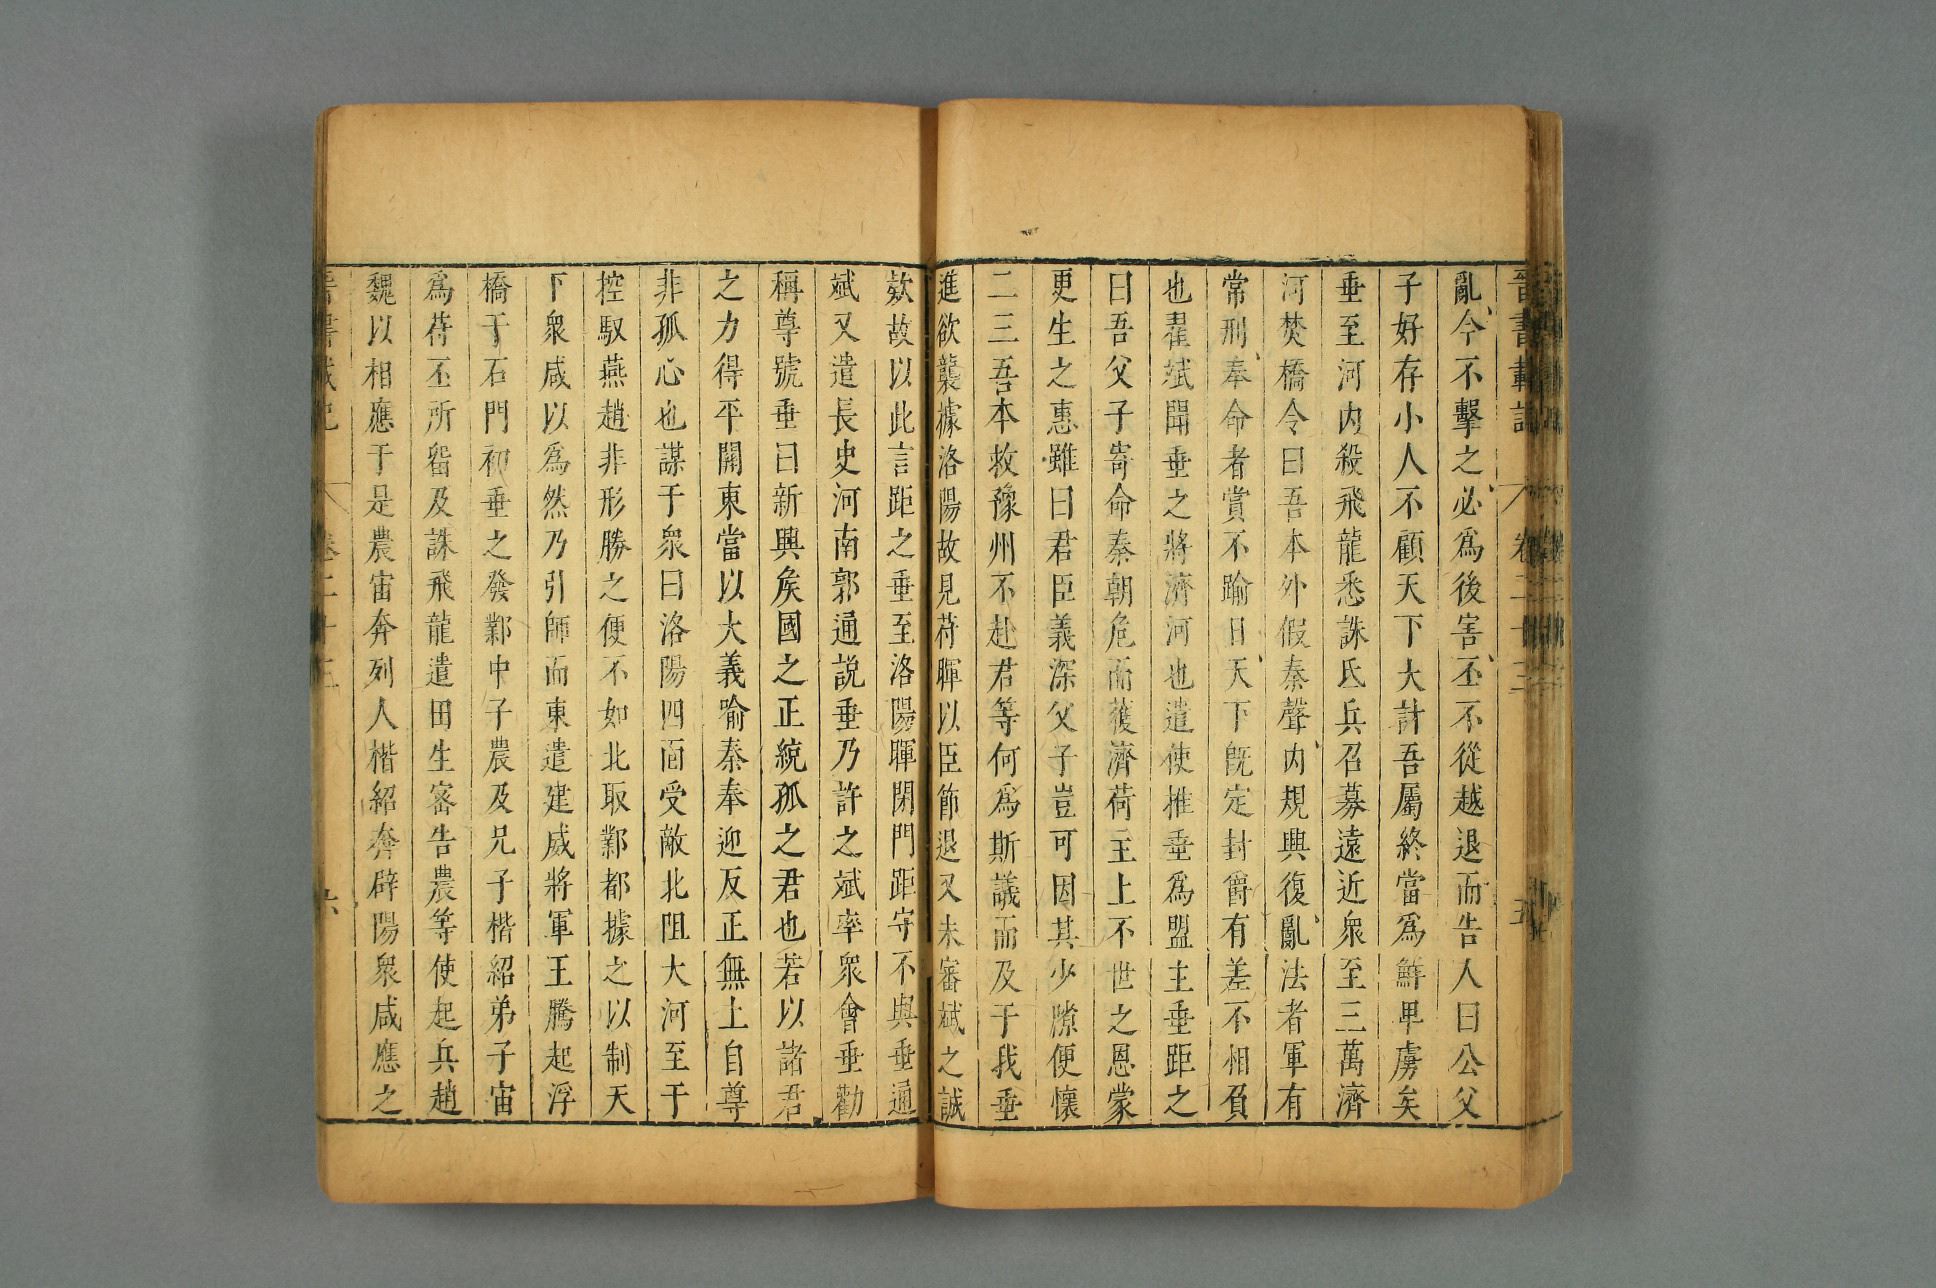 晉書載記 卷二十三 五
亂今不擊之必爲後害丕不從越退而告人曰公父
子好存小人不顧天下大計吾屬終當爲鮮卑虜矣
垂至河内殺飛龍悉誅氐兵召募遠近衆至三萬濟
河焚橋令曰吾本外假秦聲内規興復亂法者軍有
常刑奉命者賞不踰日天下旣定封爵有差不相負
也翟斌聞垂之將濟河也遣使推垂爲盟主垂距之
曰吾父子寄命秦朝危而獲濟荷主上不世之恩蒙
更生之惠雖曰君臣義深父子豈可因其少隙便懷
二三吾本救豫州不赴君等何爲斯議而及于我垂
進欲襲據洛陽故見苻暉以臣節退又未審斌之誠
款故以此言距之垂至洛陽暉閉門距守不與垂通
斌又遣長史河南郭通説垂乃許之斌率衆會垂勸
稱尊號垂曰新興矦國之正統孤之君也若以諸君
之力得平關東當以大義喻秦奉迎反正無上自尊
非孤心也謀于衆曰洛陽四面受敵北阻大河至于
控馭燕趙非形勝之便不如北取鄴都據之以制天
下衆咸以爲然乃引師而東遣建威將軍王騰起浮
橋于石門初垂之發鄴中子農及兄子楷紹弟子宙
爲苻丕所留及誅飛龍遣田生密告農等使起兵趙
魏以相應于是農宙奔列人楷紹奔辟陽衆咸應之
晉書載記 卷二十三 六